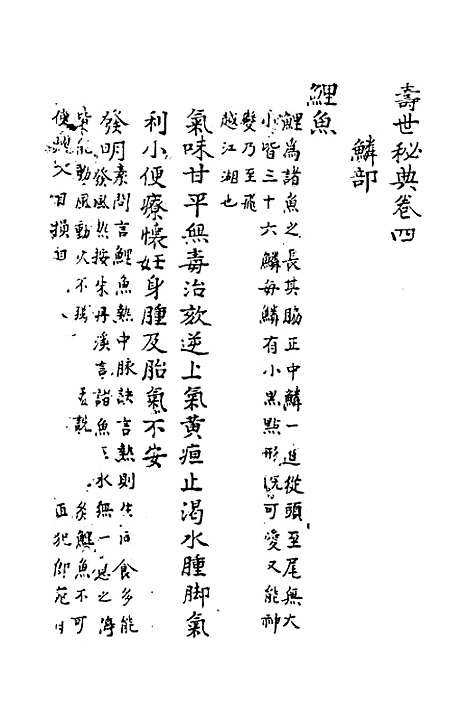 壽世秘典卷四
鱗部
鯉魚
鯉為諸魚之長其脇正中鱗一道從頭至尾無大
小皆三十六鱗每鱗有小黑點形既可愛又能神
變乃至飛
越江湖也
氣味甘平無毒治欬逆上氣黃疸止渴水腫脚氣
利小便療懷妊身腫及胎氣不安
發明素問言鯉魚熱中脉訣言熱則生風食多能
發風熱按朱丹溪言諸魚在水無一息之停
皆能動風動火不獨 炙鯉魚不可
使烟入目損目